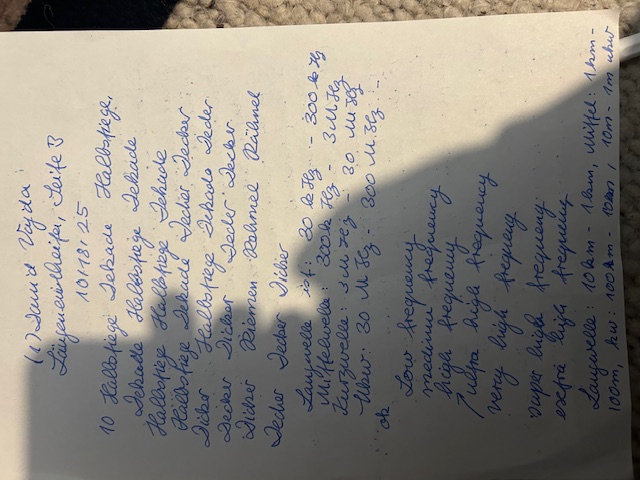 (c) David Vajda
Längeneinheiten, Seite 3
10/18/25
10 Halbstiege Dekade Halbstiege,
Dekade Halbstiege Dekade
Halbstiege Halbstiege Dekade
Halbstiege Dekade Decher Decker
Dicker Halbstiege Dekade Deder
Decker Dicker Decher Decker
Dicker Rahmel Rähmel
Decher Decher Dicker
Langwelle ist: 30 kHz - 300 kHz
Mittelwelle: 300 kHz - 3 MHz
Kurzwelle: 3 MHz - 30 MHz
Ukw: 30 MHz - 300 MHz -
ok
Low frequency
medium frequency
high frequency
↗ ultra high frequency
very high frequency
super high frequency
extra high frequency
Langwelle: 10 km - 1 km, Mittel: 1 km -
100m, kw: 100 m - 10 m, 10m - 1m ukw